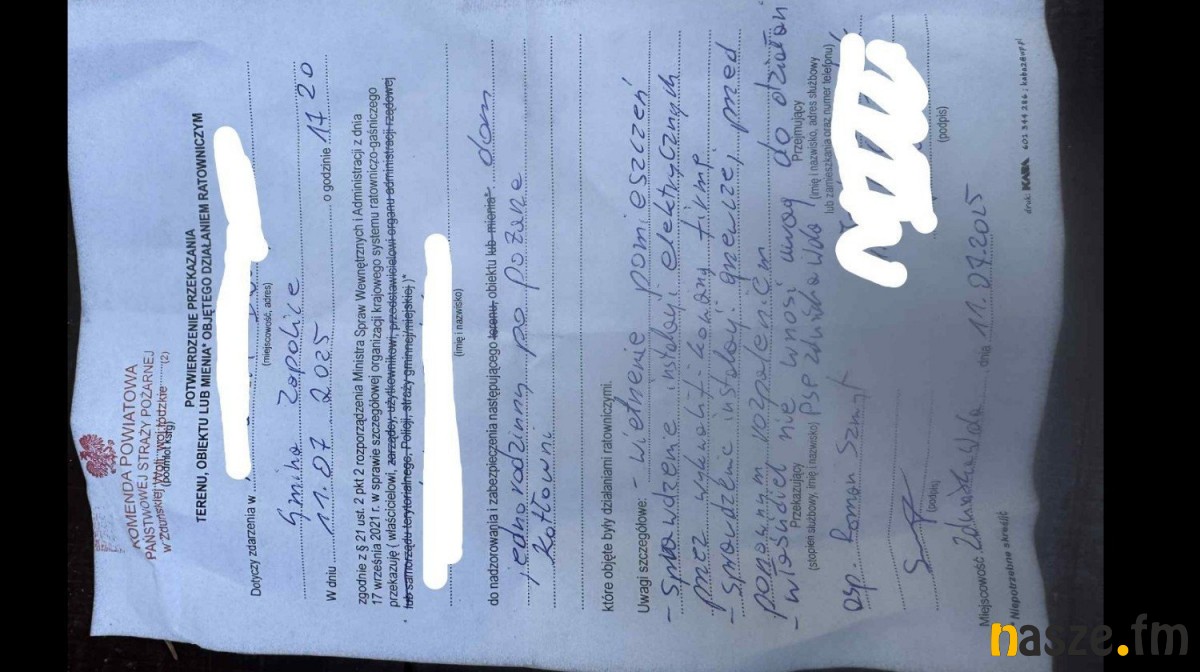 KOMENDA POWIATOWA
PAŃSTWOWEJ STRAŻY POŻARNEJ
w Zduńskiej Woli, woj. łódzkie (2)
(podmiot ksrg)
POTWIERDZENIE PRZEKAZANIA
TERENU, OBIEKTU LUB MIENIA* OBJĘTEGO DZIAŁANIEM RATOWNICZYM
Dotyczy zdarzenia w
(miejscowość, adres)
gmina Zapolice
W dniu 11.07 2025 o godzinie 17 20
zgodnie z § 21 ust. 2 pkt 2 rozporządzenia Ministra Spraw Wewnętrznych i Administracji z dnia
17 września 2021 r. w sprawie szczegółowej organizacji krajowego systemu ratowniczo-gaśniczego
przekazuję ( właścicielowi, zarządcy, użytkownikowi, przedstawicielowi organu administracji rządowej
lub samorządu terytorialnego, Policji, straży gminnej/miejskiej )*
(imię i nazwisko)
do nadzorowania i zabezpieczenia następującego terenu, obiektu lub mienia* dom
jednorodzinny po pożarze
kotłowni
które objęte były działaniami ratowniczymi.
Uwagi szczegółowe: - wietrzenie pomieszczeń
- sprawdzenie instalacji elektrycznych
przez wykwalifikowaną firmę
- sprawdzenie instalacji grzewczej przed
ponownym rozpaleniem
- właściciel nie wnosi uwag do działań
Przekazujący
(stopień służbowy, imię i nazwisko) PSP Zduńska Wola
Przejmujący
(imię i nazwisko, adres służbowy
lub zamieszkania oraz numer telefonu)
asp. Roman Szmyt
(podpis)
(podpis)
Miejscowość Zduńska Wola dnia 11.07.2025
* Niepotrzebne skreślić
druk: KABA 601 344 286 ; kaba2@wp.pl
nasze.fm